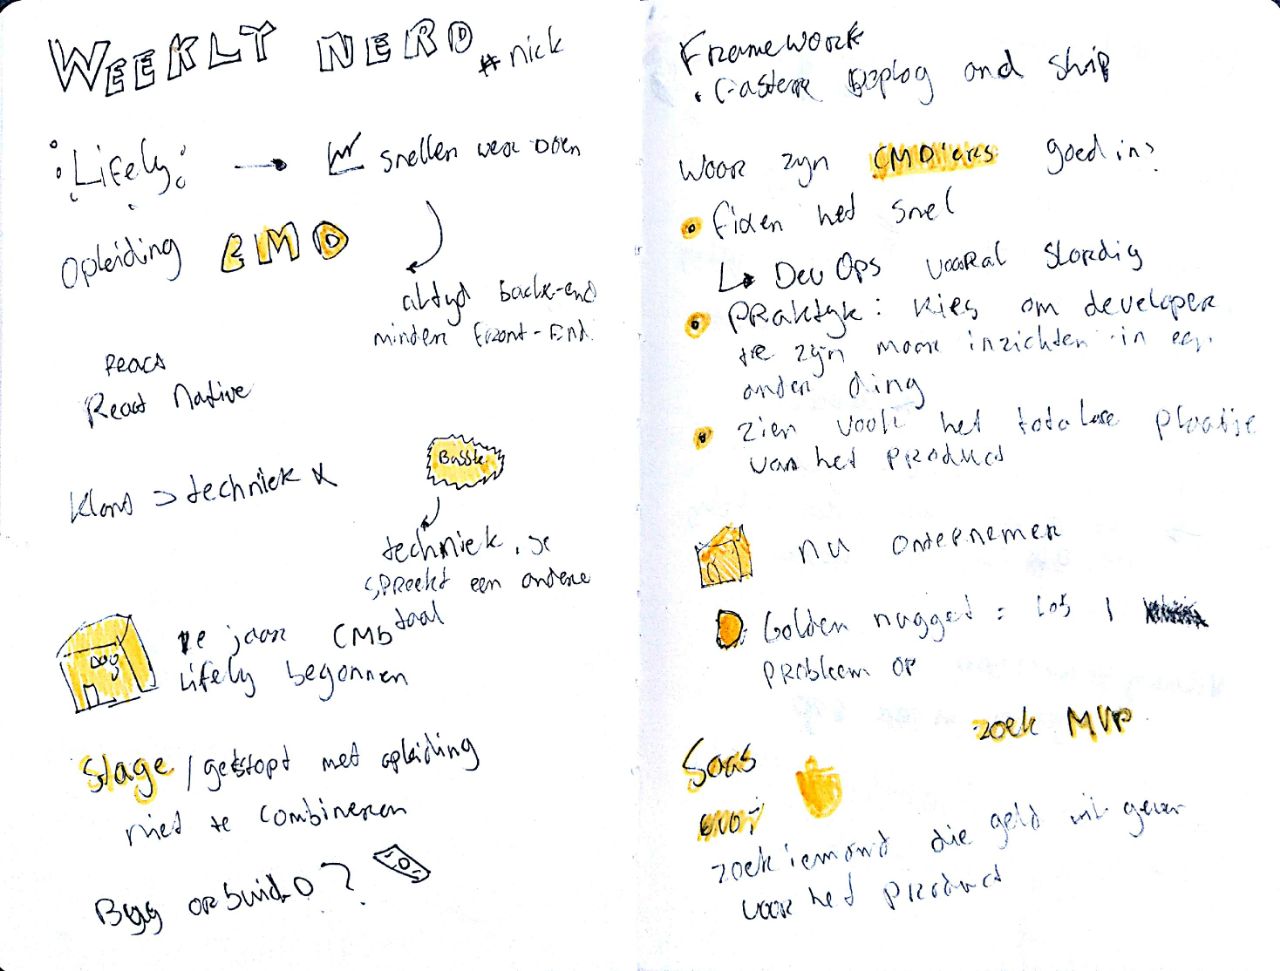 WEEKLY NERD
#nick
Lifely → snellen weer doen
Opleiding CMD
altyd back-end
minder Front-End.
React
React Native
Klant > techniek
techniek, je
spreekt een andere
taal
1e jaar CMD
Lifely begonnen
Stage / gestopt met opleiding
niet te combineren
or build?
Framework
and ship
Waar zyn CMD'ers goed in?
Fixen het snel
↳ DevOps vooral slordig
Praktyk: Kies om developer
te zyn maar inzichten in een
ander ding
Zien vook het totale plaatje
van het product
nu onternemer
Golden nugget: los 1
probleem op
zoek MVP
Saas
zoek iemand die geld wil geven
voor het product